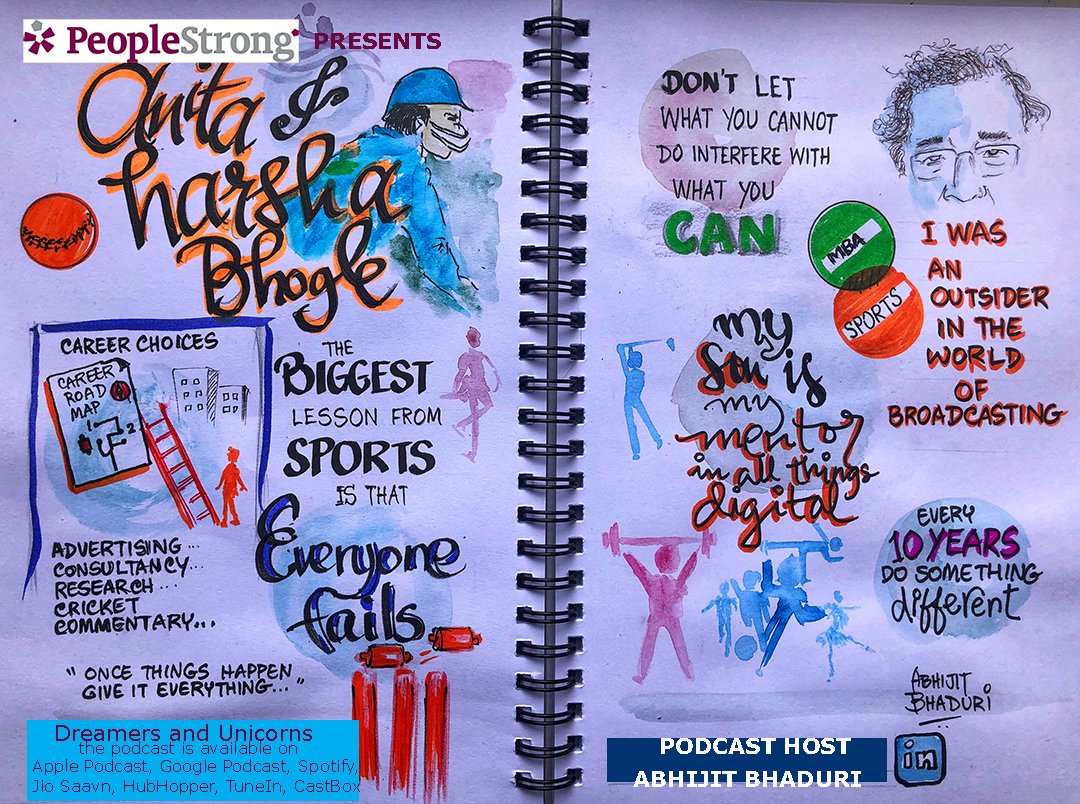 PeopleStrong PRESENTS
Anita &
harsha
Bhogle
CAREER CHOICES
CAREER
ROAD
MAP
1
2
ADVERTISING...
CONSULTANCY...
RESEARCH...
CRICKET
COMMENTARY...
"ONCE THINGS HAPPEN
GIVE IT EVERYTHING..."
THE
BIGGEST
LESSON FROM
SPORTS
IS THAT
Everyone
fails
Dreamers and Unicorns
the podcast is available on
Apple Podcast, Google Podcast, Spotify,
Jio Saavn, HubHopper, TuneIn, CastBox
DON'T LET
WHAT YOU CANNOT
DO INTERFERE WITH
WHAT YOU
CAN
MBA
SPORTS
I WAS
AN
OUTSIDER
IN THE
WORLD
OF
BROADCASTING
my
Son is
my
mentor
in all things
digital
EVERY
10 YEARS
DO SOMETHING
different
ABHIJIT
BHADURI
in
PODCAST HOST
ABHIJIT BHADURI